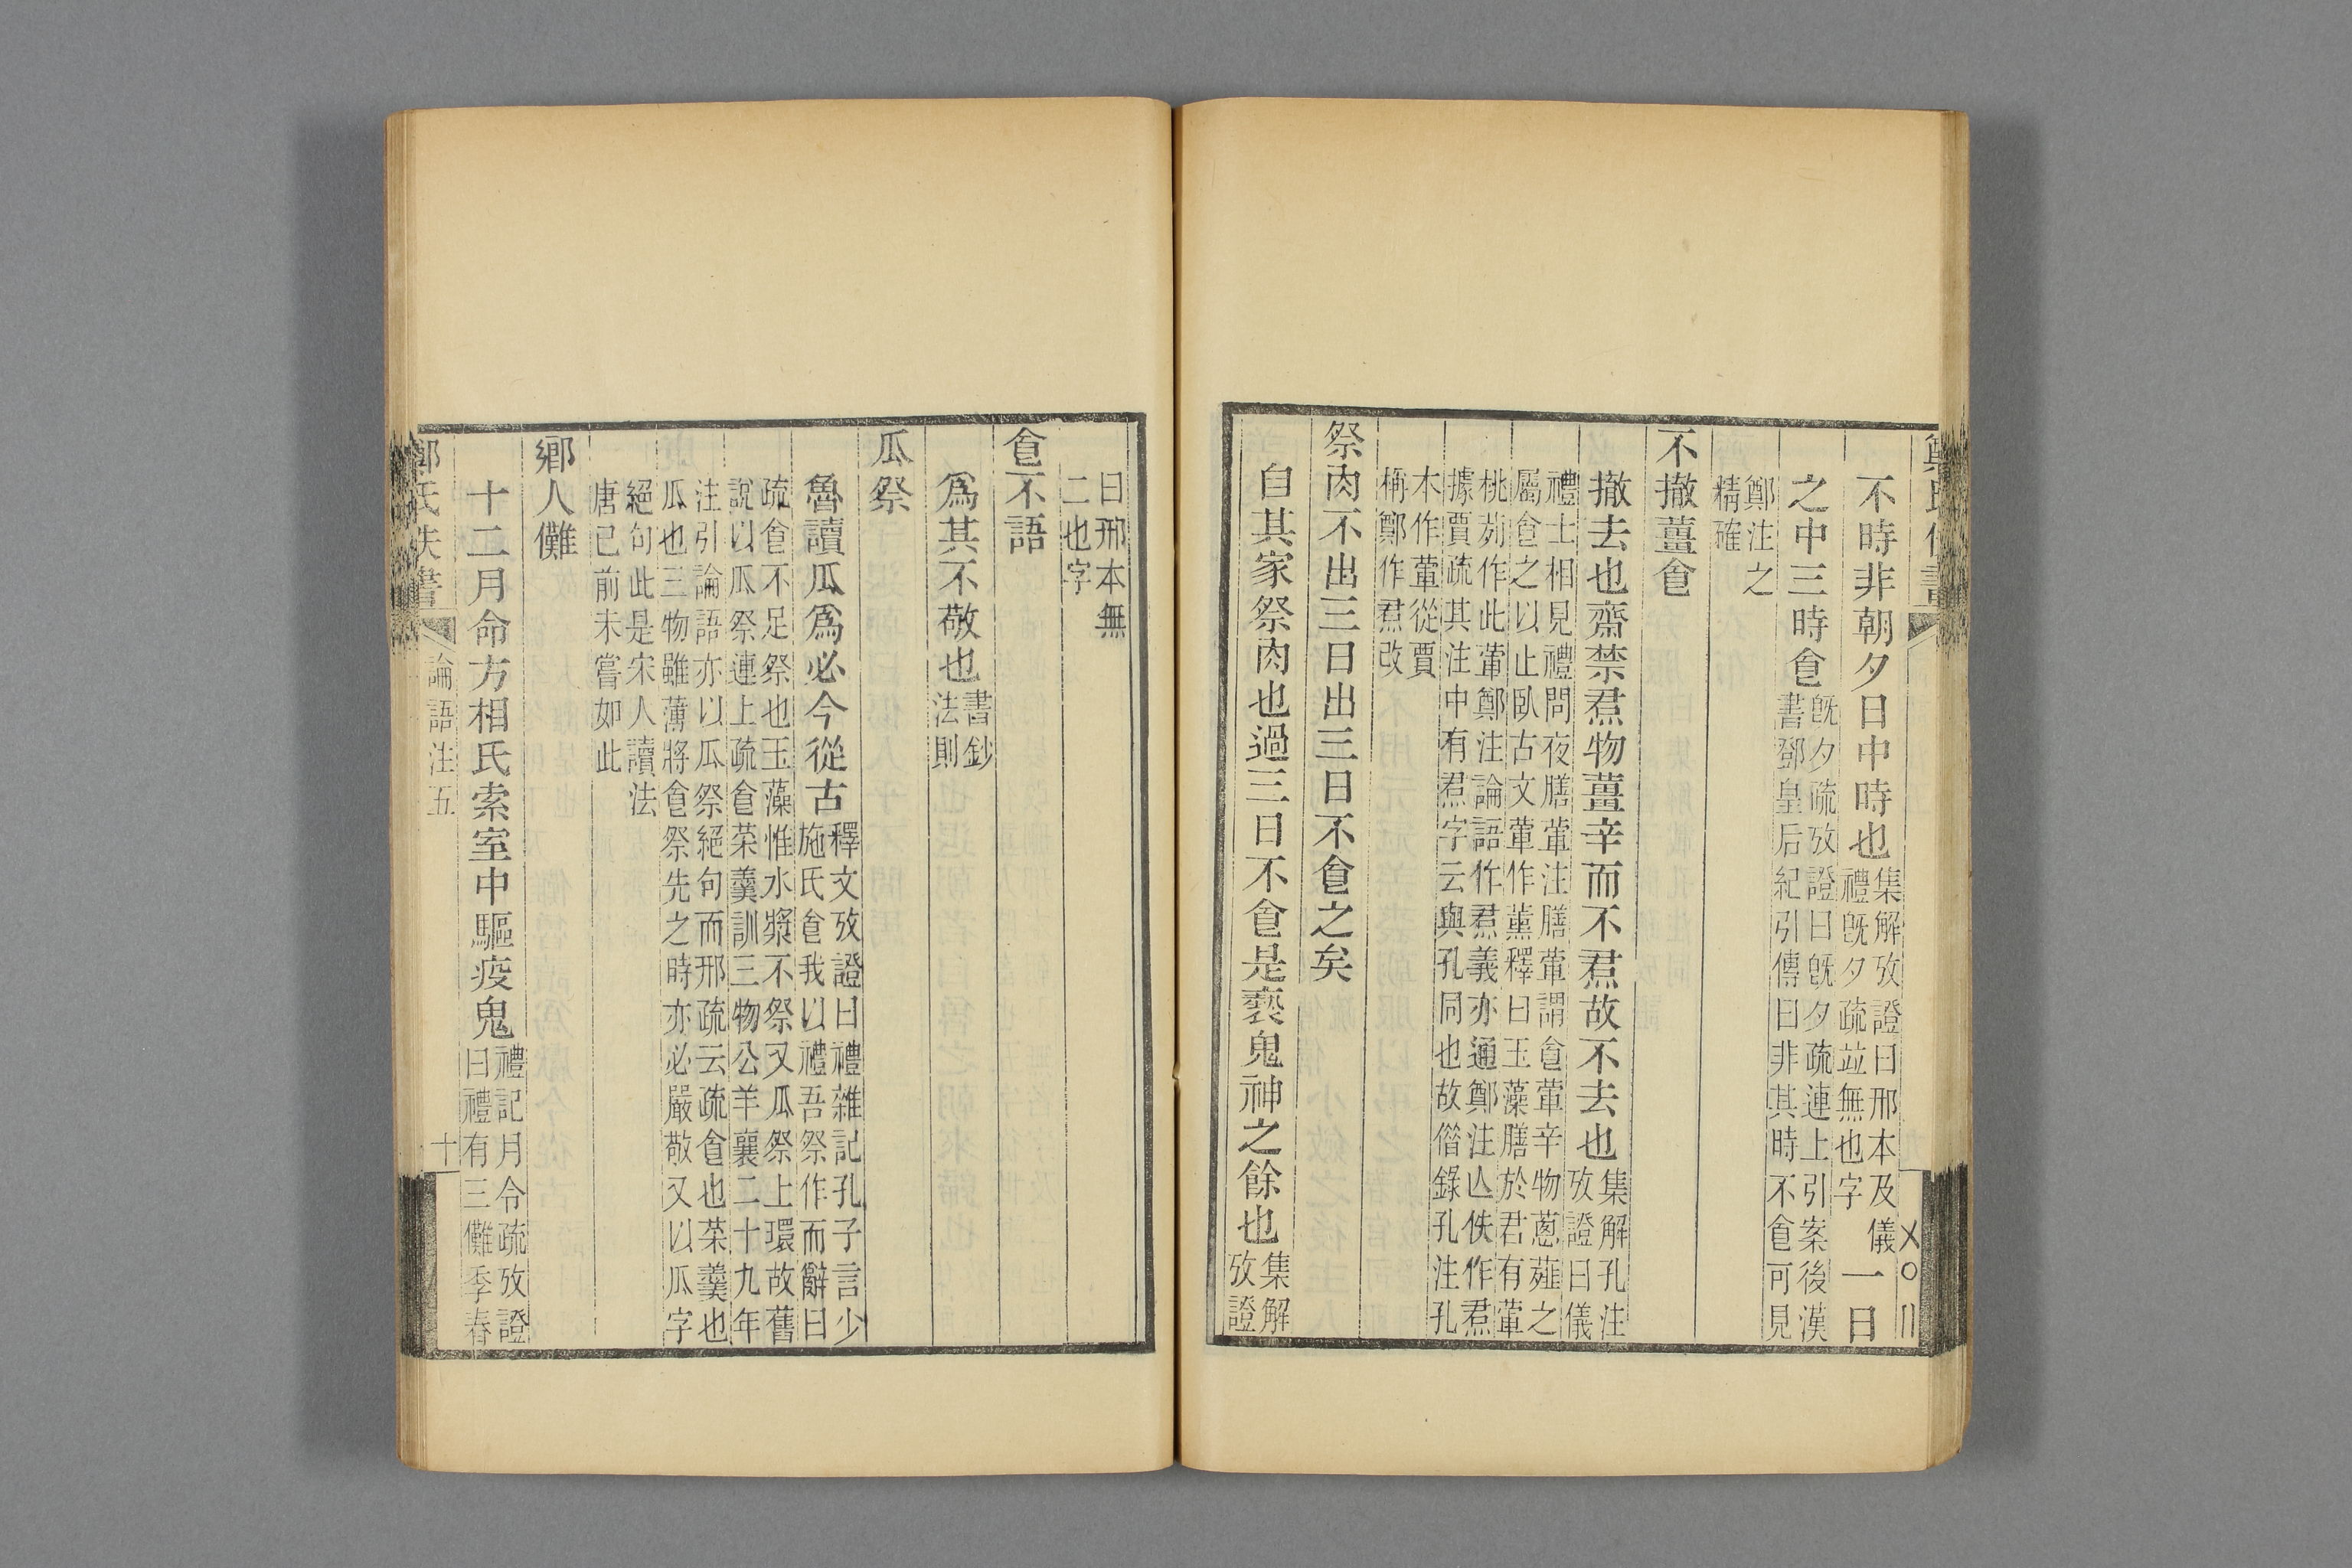 不時非朝夕日中時也集解攷證曰邢本及儀禮旣夕疏竝無也字一日
之中三時𠊊旣夕疏攷證曰旣夕疏連上引案後漢書鄧皇后紀引傳曰非其時不𠊊可見
鄭注之精確
不撤薑𠊊
撤去也齋禁焄物薑辛而不焄故不去也集解孔注攷證曰儀
禮士相見禮問夜膳葷注膳葷謂𠊊葷辛物蔥薤之屬𠊊之以止臥古文葷作薰釋曰玉藻膳於君有葷
桃茢作此葷鄭注論語作焄義亦通鄭注亾佚作焄據賈疏其注中有焄字云與孔同也故偺錄孔注孔
本作葷從賈稱鄭作焄改
祭肉不出三日出三日不𠊊之矣
自其家祭肉也過三日不𠊊是褻鬼神之餘也集解攷證
曰邢本無二也字
𠊊不語
爲其不敬也書鈔法則
瓜祭
魯讀瓜爲必今從古釋文攷證曰禮雜記孔子言少施氏𠊊我以禮吾祭作而辭曰
疏𠊊不足祭也玉藻惟水漿不祭又瓜祭上環故舊說以瓜祭連上疏𠊊菜羹訓三物公羊襄二十九年
注引論語亦以瓜祭絕句而邢疏云疏𠊊也菜羹也瓜也三物雖薄將𠊊祭先之時亦必嚴敬又以瓜字
絕句此是宋人讀法唐已前未嘗如此
鄉人儺
十二月命方相氏索室中驅疫鬼禮記月令疏攷證曰禮有三儺季春
鄭氏佚書 論語注五 十